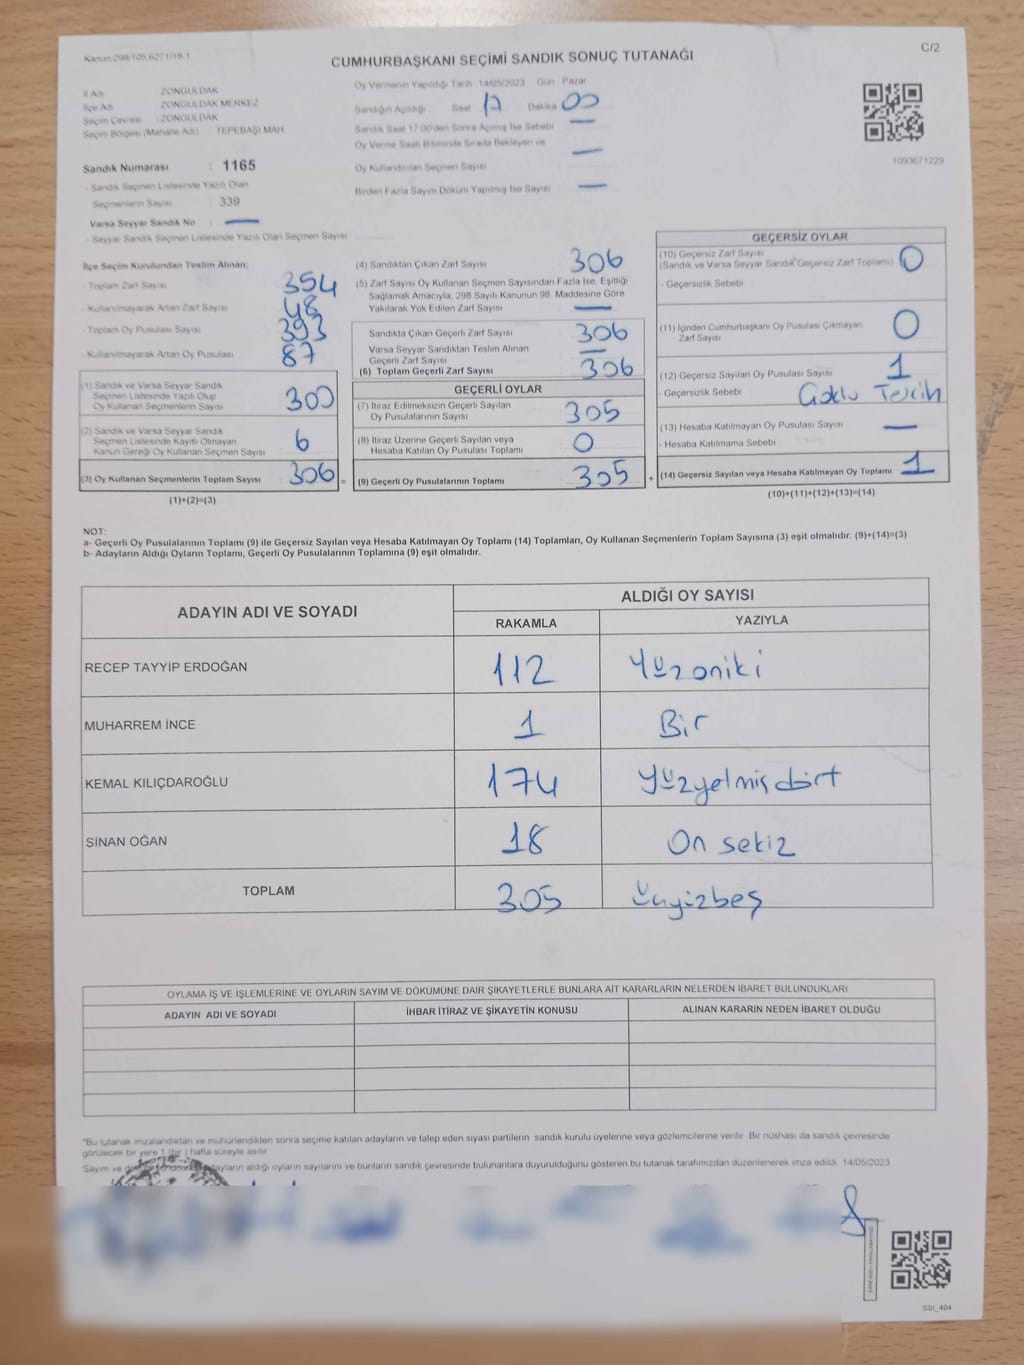 Kanun:298/105,6271/18-1
C/2
CUMHURBAŞKANI SEÇİMİ SANDIK SONUÇ TUTANAĞI
İl Adı : ZONGULDAK
İlçe Adı : ZONGULDAK MERKEZ
Seçim Çevresi : ZONGULDAK
Seçim Bölgesi (Mahalle Adı) : TEPEBAŞI MAH.
Sandık Numarası : 1165
- Sandık Seçmen Listesinde Yazılı Olan
Seçmenlerin Sayısı : 339
Varsa Seyyar Sandık No : —
- Seyyar Sandık Seçmen Listesinde Yazılı Olan Seçmen Sayısı
Oy Vermenin Yapıldığı Tarih 14/05/2023 Gün Pazar
Sandığın Açıldığı Saat 17 Dakika 00
Sandık Saat 17:00'den Sonra Açılmış İse Sebebi —
Oy Verme Saati Bitiminde Sırada Bekleyen ve
Oy Kullandırılan Seçmen Sayısı —
Birden Fazla Sayım Döküm Yapılmış İse Sayısı —
1093671229
İlçe Seçim Kurulundan Teslim Alınan;
- Toplam Zarf Sayısı 354
- Kullanılmayarak Artan Zarf Sayısı 48
- Toplam Oy Pusulası Sayısı 393
- Kullanılmayarak Artan Oy Pusulası 87
(1) Sandık ve Varsa Seyyar Sandık
Seçmen Listesinde Yazılı Olup
Oy Kullanan Seçmenlerin Sayısı 300
(2) Sandık ve Varsa Seyyar Sandık
Seçmen Listesinde Kayıtlı Olmayan
Kanun Gereği Oy Kullanan Seçmen Sayısı 6
(3) Oy Kullanan Seçmenlerin Toplam Sayısı 306 =
(1)+(2)=(3)
(4) Sandıktan Çıkan Zarf Sayısı 306
(5) Zarf Sayısı Oy Kullanan Seçmen Sayısından Fazla İse, Eşitliği
Sağlamak Amacıyla, 298 Sayılı Kanunun 98. Maddesine Göre
Yakılarak Yok Edilen Zarf Sayısı —
Sandıkta Çıkan Geçerli Zarf Sayısı 306
Varsa Seyyar Sandıktan Teslim Alınan
Geçerli Zarf Sayısı —
(6) Toplam Geçerli Zarf Sayısı 306
GEÇERLİ OYLAR
(7) İtiraz Edilmeksizin Geçerli Sayılan
Oy Pusulalarının Sayısı 305
(8) İtiraz Üzerine Geçerli Sayılan veya
Hesaba Katılan Oy Pusulası Toplamı 0
(9) Geçerli Oy Pusulalarının Toplamı 305 +
GEÇERSİZ OYLAR
(10) Geçersiz Zarf Sayısı
(Sandık ve Varsa Seyyar Sandık Geçersiz Zarf Toplamı) 0
- Geçersizlik Sebebi
(11) İçinden Cumhurbaşkanı Oy Pusulası Çıkmayan
Zarf Sayısı 0
(12) Geçersiz Sayılan Oy Pusulası Sayısı 1
- Geçersizlik Sebebi Çoklu Tercih
(13) Hesaba Katılmayan Oy Pusulası Sayısı —
- Hesaba Katılmama Sebebi :
(14) Geçersiz Sayılan veya Hesaba Katılmayan Oy Toplamı 1
(10)+(11)+(12)+(13)=(14)
NOT:
a- Geçerli Oy Pusulalarının Toplamı (9) ile Geçersiz Sayılan veya Hesaba Katılmayan Oy Toplamı (14) Toplamları, Oy Kullanan Seçmenlerin Toplam Sayısına (3) eşit olmalıdır. (9)+(14)=(3)
b- Adayların Aldığı Oyların Toplamı, Geçerli Oy Pusulalarının Toplamına (9) eşit olmalıdır.
ADAYIN ADI VE SOYADI
ALDIĞI OY SAYISI
RAKAMLA YAZIYLA
RECEP TAYYİP ERDOĞAN 112 Yüzoniki
MUHARREM İNCE 1 Bir
KEMAL KILIÇDAROĞLU 174 Yüzyetmişdört
SİNAN OĞAN 18 On sekiz
TOPLAM 305 Üçyüzbeş
OYLAMA İŞ VE İŞLEMLERİNE VE OYLARIN SAYIM VE DÖKÜMÜNE DAİR ŞİKAYETLERLE BUNLARA AİT KARARLARIN NELERDEN İBARET BULUNDUKLARI
ADAYIN ADI VE SOYADI İHBAR İTİRAZ VE ŞİKAYETİN KONUSU ALINAN KARARIN NEDEN İBARET OLDUĞU
*Bu tutanak imzalandıktan ve mühürlendikten sonra seçime katılan adayların ve talep eden siyasi partilerin sandık kurulu üyelerine veya gözlemcilerine verilir. Bir nüshası da sandık çevresinde
görülecek bir yere 1 (bir) hafta süreyle asılır.
Sayım ve adayların aldığı oyların sayılarını ve bunların sandık çevresinde bulunanlara duyurulduğunu gösteren bu tutanak tarafımızdan düzenlenerek imza edildi. 14/05/2023
SSI_404